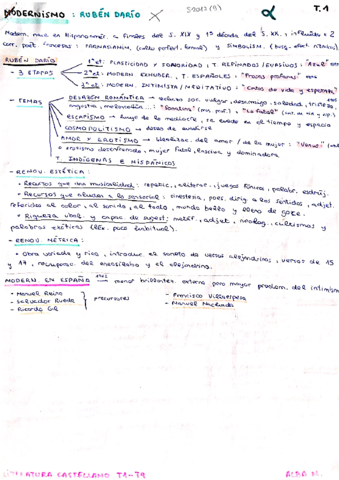 MODERNISMO : RUBÉN DARÍO
T.1
Modern. nace en Hispanoamér. a finales del S. XIX y 1ª década del S. XX, influidos x 2
corr. poét. francesas : PARNASIANISM. (culto perfecc. formal) y SIMBOLISM.
RUBÉN DARÍO
- 3 ETAPAS
1ª et: PLASTICIDAD y SONORIDAD, T. REFINADOS/EVASIVOS: "Azul"
2ª et: MODERN. EXHUBER., T. ESPAÑOLES: "Prosas profanas"
3ª et: MODERN. INTIMISTA/MEDITATIVO: "Cantos de vida y esperanza"
- TEMAS
DESAZÓN ROMÁNTICA → rechazo soc. vulgar, desarraigo, soledad, tristeza,
angustia, melancolía...: "Sonatina" "Lo fatal"
ESCAPISMO → huye de lo mediocre, se evade en el tiempo y espacio
COSMOPOLITISMO → deseo de evadirse
AMOR Y EROTISMO → idealizac. del amor / de la mujer : "Venus"
≠ erotismo desenfrenado, mujer fatal, lasciva y dominadora
T. INDÍGENAS E HISPÁNICOS
- RENOV. ESTÉTICA:
· Recursos que dan musicalidad: repetic., aliterac., juegos fónicos, palabr. esdrúj.
· Recursos que aluden a lo sensorial: sinestesia, poes. dirig. a los sentidos, adjet.
referidos al color, al sonido, al tacto, mundo bello y lleno de goce.
· Riqueza vocab. y capac. de suger: metáf., adjet., neolog., cultismos y
palabras exóticas (léx. poco habitual).
- RENOV. MÉTRICA:
· Obra variada y rica, introduce el soneto de versos alejandrinos, versos de 15
y 17, recuperac. del eneasílabo y el alejandrino.
MODERN. EN ESPAÑA → menor brillantez externa para mayor predom. del intimismo
- Manuel Reina
- Salvador Rueda
- Ricardo Gil
precursores
- Francisco Villaespesa
- Manuel Machado
LITERATURA CASTELLANO T1-T9
ALBA M.